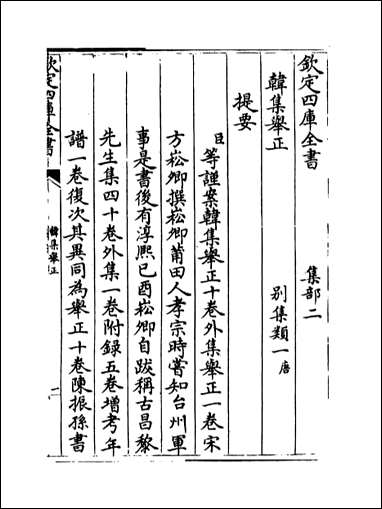 欽定四庫全書
集部二
韓集舉正
別集類一唐
提要
臣等謹案韓集舉正十卷外集舉正一卷宋
方崧卿撰崧卿莆田人孝宗時嘗知台州軍
事是書後有淳熙己酉崧卿自跋稱右昌黎
先生集四十卷外集一卷附録五卷增考年
譜一卷復次其異同為舉正十卷陳振孫書
欽定四庫全書
韓集舉正
一